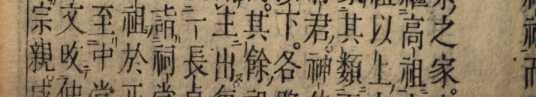 之家。
高祖
以上
其類
君神
下。各
其餘
主出
一長
詣祠
祖於
至中
文改
宗親